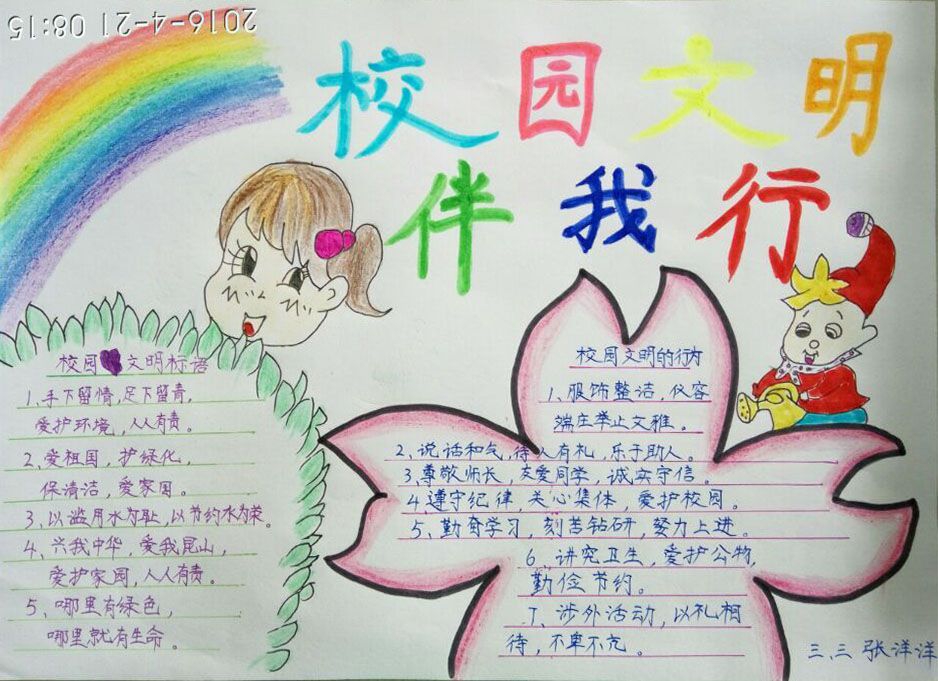 2016-4-21 08:15
校园文明
伴我行
校园文明标语
1、手下留情,足下留青,
爱护环境,人人有责。
2、爱祖国,护绿化,
保清洁,爱家园。
3、以滥用水为耻,以节约水为荣。
4、兴我中华,爱我昆山,
爱护家园,人人有责。
5、哪里有绿色,
哪里就有生命。
校园文明的行为
1、服饰整洁,仪容
端庄举止文雅。
2、说话和气,待人有礼,乐于助人。
3、尊敬师长,友爱同学,诚实守信。
4遵守纪律,关心集体,爱护校园。
5、勤奋学习,刻苦钻研,努力上进。
6、讲究卫生,爱护公物,
勤俭节约。
7、涉外活动,以礼相
待,不卑不亢。
三、三 张洋洋